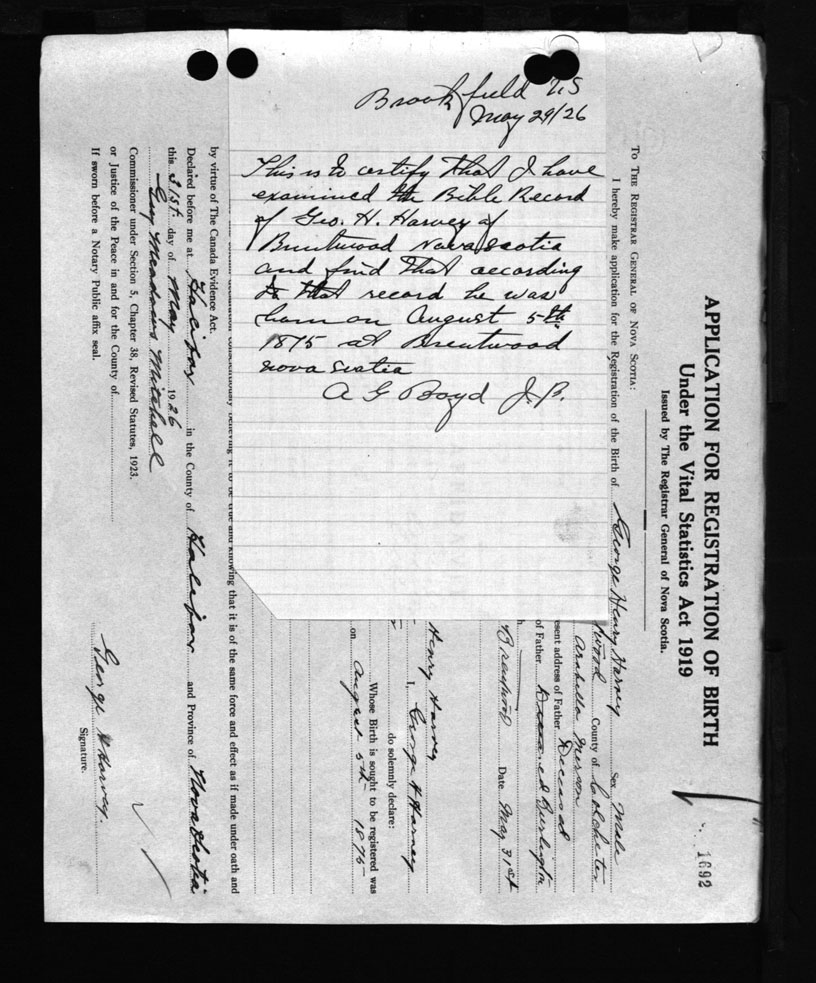 Brookfield N.S
May 29/26
This is to certify that I have
examined the Bible Record
of Geo. H. Harvey of
Brentwood Nova Scotia
and find that according
to that record he was
born on August 5th
1875 at Brentwood
Nova Scotia
A G Boyd J.P.
APPLICATION FOR REGISTRATION OF BIRTH
Under the Vital Statistics Act 1919
Issued by The Registrar General of Nova Scotia.
1692
To The Registrar General of Nova Scotia:
I hereby make application for the Registration of the Birth of George Henry Harvey Sex Male
wood County of Colchester
Arabella
esent address of Father Deceased
of Father Deceased Burlington
Brentwood Date May 31st
Henry Harvey
I, George H Harvey
do solemnly declare:
Whose Birth is sought to be registered was
on August 5th 1875
conscientiously believing it to be true and knowing that it is of the same force and effect as if made under oath and
by virtue of The Canada Evidence Act.
Declared before me at Halifax in the County of Halifax and Province of Nova Scotia
this 31st. day of May 1926
Guy Meadows Mitchell
Commissioner under Section 5, Chapter 38, Revised Statutes, 1923.
or Justice of the Peace in and for the County of
If sworn before a Notary Public affix seal.
George H Harvey.
Signature.